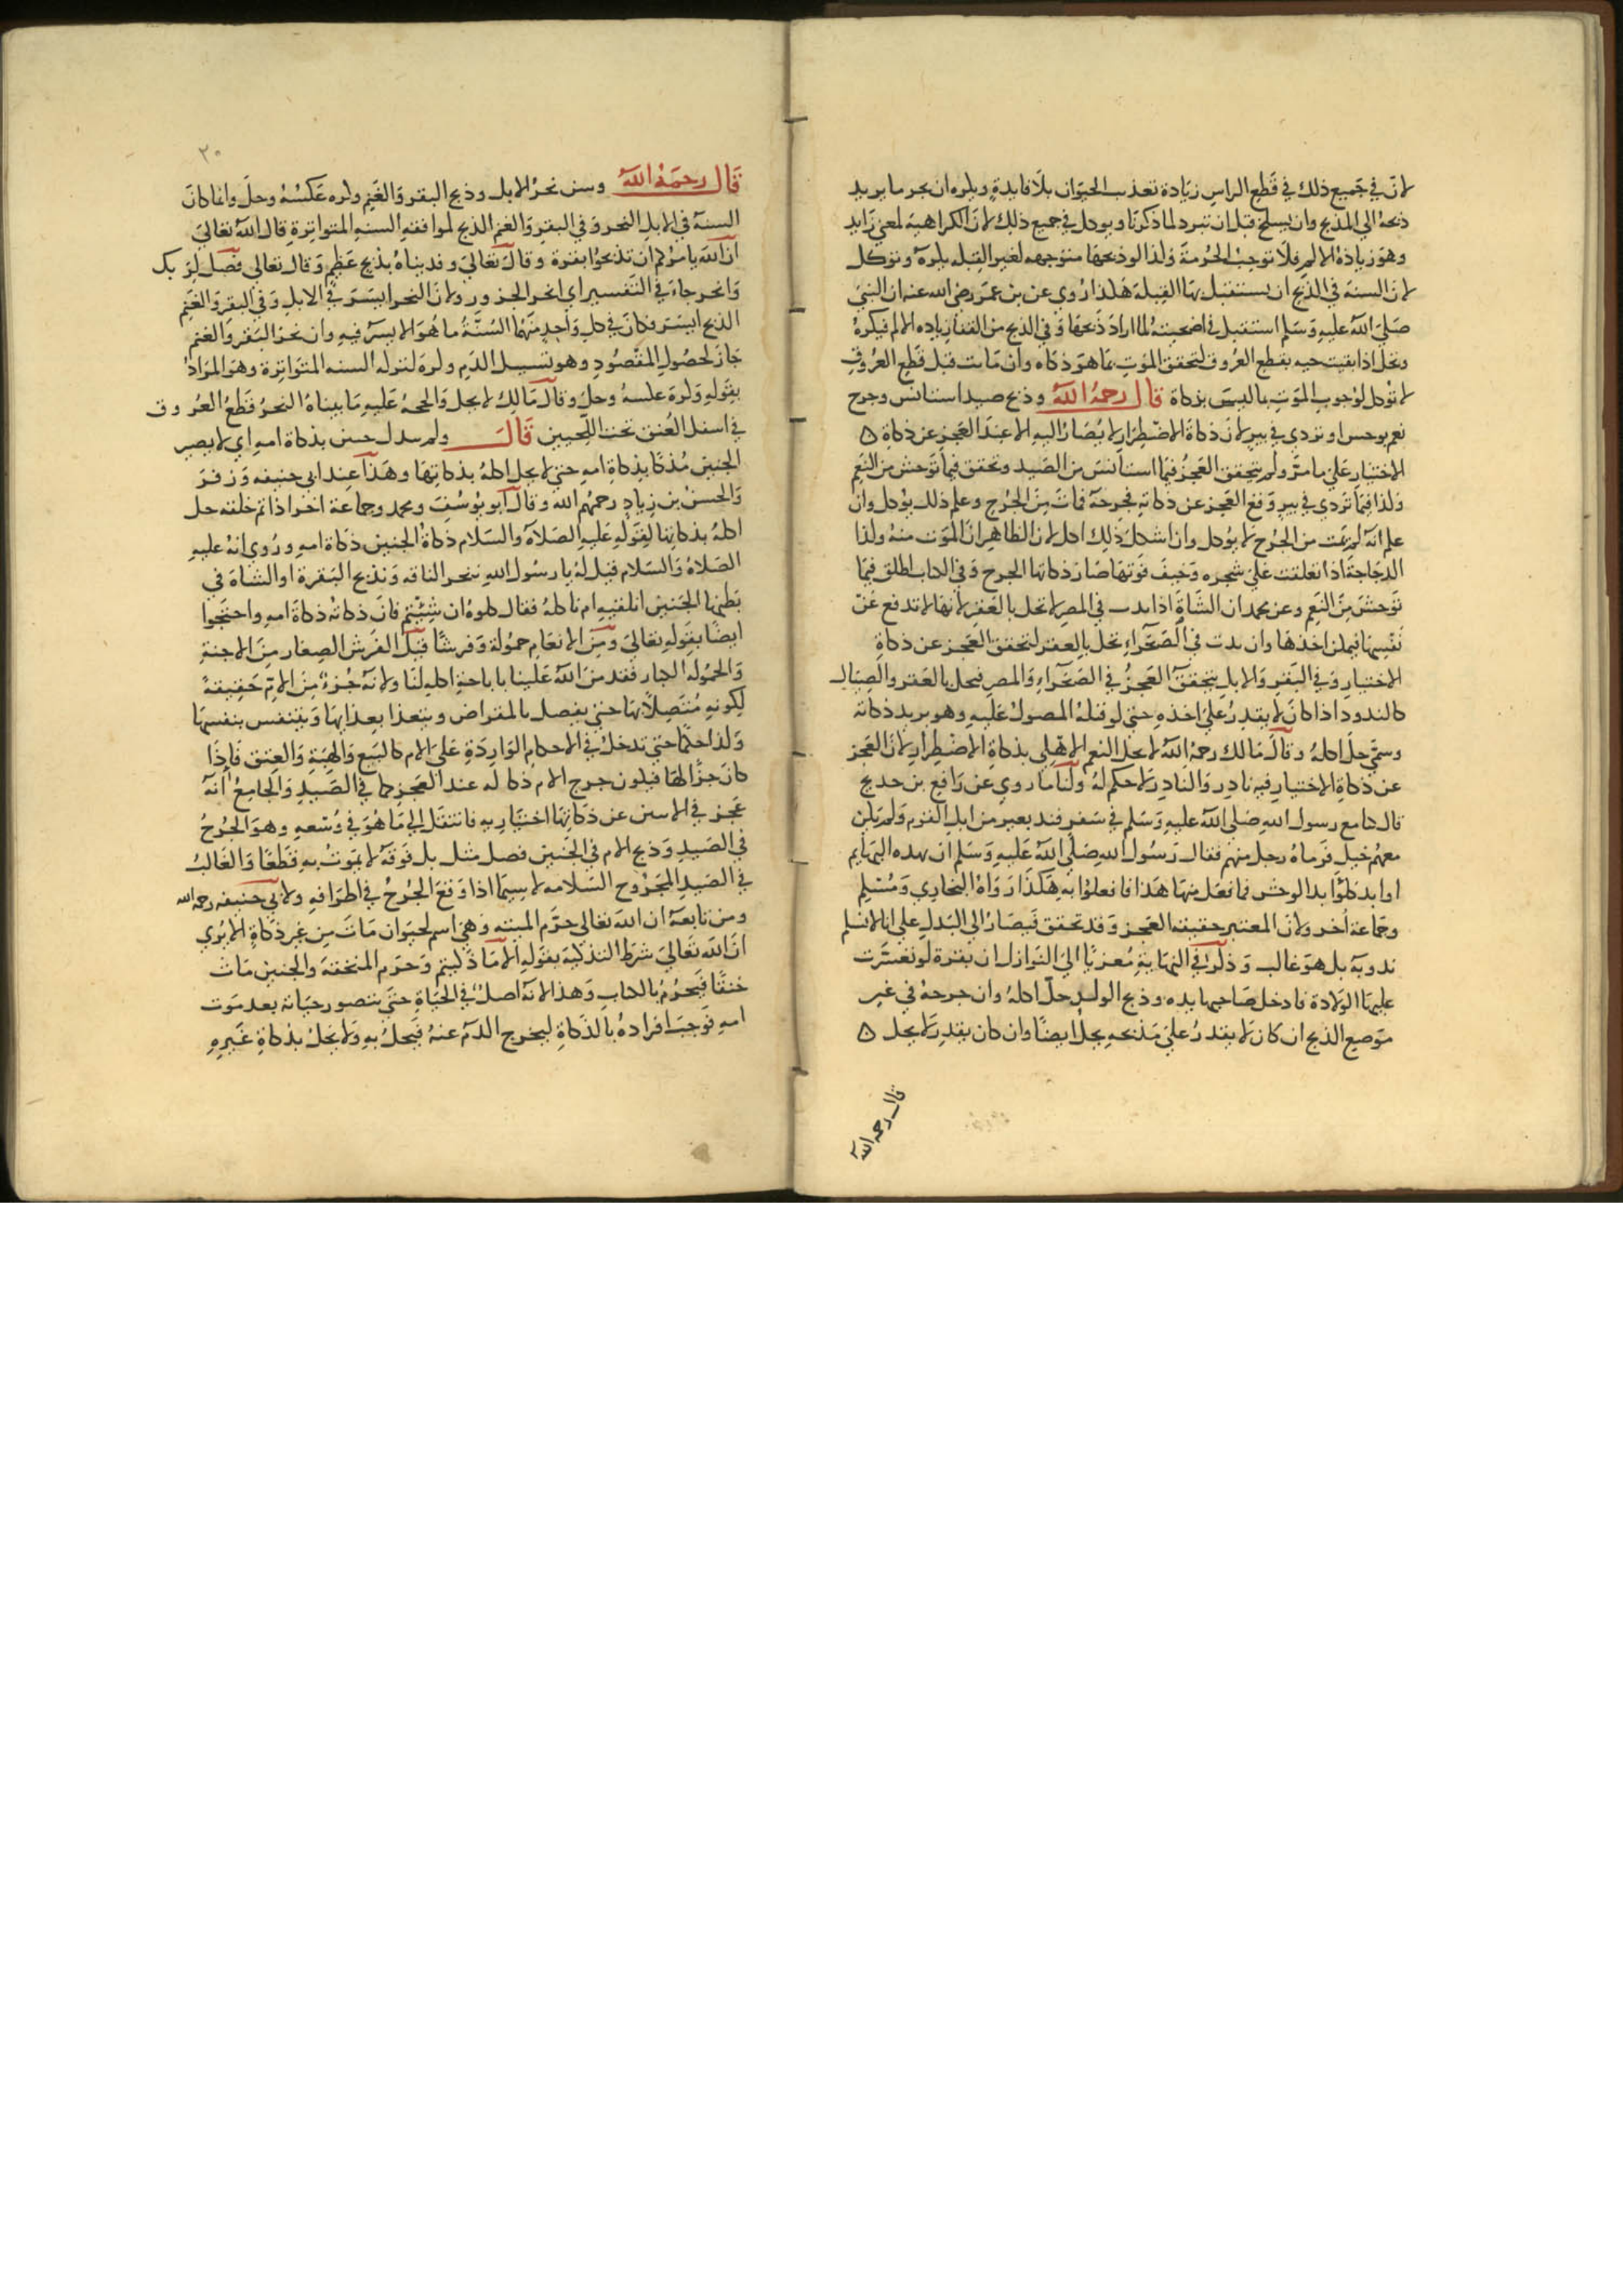 لان في جميع ذلك في قطع الراس زيادة تعذيب الحيوان بلا فايدة ويكره ان يجر ما يريد
ذبحه الي المذبح وان يسلخ قبل ان تبرد لما ذكرنا ويوكل في جميع ذلك لان الكراهية لمعني زايد
وهو زيادة الالم فلا توجب الحرمة ولذا لو ذبحها متوجهه لغير القبله يكره وتؤكل
لان السنة في الذبح ان يستقبل بها القبلة هكذا روي عن بن عمر رضي الله عنه ان النبي
صلي الله عليه وسلم استقبل في اضحيته لما اراد ذبحها وفي الذبح من القفا زياده الالم فيكره
وتحل اذا بقيت حيه بقطع العروق لتحقق الموت بما هو ذكاه وان ماتت قبل قطع العروق
لا توكل لوجوب الموت بما ليس بذكاة قال رحمه الله وذبح صيد استانس وجرح
نعم توحس او تردي في بير لان ذكاة الاضطرار لا يصار اليه الا عند العجز عن ذكاة
الاختيار علي ما مر ولم يتحقق العجز فيما استانس من الصيد وتحقق فيما توحش من النعم
ولذا فيما تردي في بير وقع العجز عن ذكاته فجرحه فمات من الجرح وعلم ذلك يوكل وان
علم انه لم يمت من الجرح لا يوكل وان اشكل ذلك اكل لان الظاهر ان الموت منه ولذا
الدجاجة اذا تعلقت علي شجره وخيف فوتها صار ذكاتها الجرح وفي الكتاب اطلق فيما
توحش من النعم وعن محمد ان الشاة اذا ندت في المصر لا تحل بالعقر لانها لا تدفع عن
نفسها فيمكن اخذها وان ندت في الصحراء تحل بالعقر لتحقق العجز عن ذكاة
الاختيار وفي البقر والابل يتحقق العجز في الصحراء والمصر فيحل بالعقر والصيال
كالندود اذا كان لا يقدر علي اخذه حتي لو قتله المصول عليه وهو يريد ذكاته
وسمي حل اكله وقال مالك رحمه الله لا يحل النعم الاهلي بذكاة الاضطرار لان العجز
عن ذكاة الاختيار فيه نادر والنادر لا حكم له ولنا ما روي عن رافع بن خديج
قال كنا مع رسول الله صلي الله عليه وسلم في سفر فند بعير من ابل القوم ولم يكن
معهم خيل فرماه رجل منهم فقال رسول الله صلي الله عليه وسلم ان بهده البهايم
اوابد كاوابد الوحش فما فعل منها هذا فافعلوا به هكذا رواه البخاري ومسلم
وجماعة اخر ولان المعتبر حقيقة العجز وقد تحقق فيصار الي البدل علي انا لا نسلم
ندوبه بل هو غالب وذكر في النهاية معزيا الي النوازل ان بقرة لو تعسرت
عليها الولادة فادخل صاحبها يده وذبح الولد حل اكله وان جرحه في غير
موضع الذبح ان كان لا يقدر علي مذبحه يحل ايضا وان كان يقدر لا يحل
قال رحمه الله
٢٠
قال رحمه الله وسن نحر الابل وذبح البقر والغنم وكره عكسه وحل وانما كان
السنة في الابل النحر وفي البقر والغنم الذبح لموافقه السنه المتواترة قال الله تعالي
ان الله يامركم ان تذبحوا بقرة وقال تعالي وفديناه بذبح عظيم وقال تعالي فصل لربك
وانحر جاء في التفسير اي انحر الجزور ولان النحر ايسر في الابل وفي البقر والغنم
الذبح ايسر فكان في كل واحد منهما السنة ما هو الايسر فيه وان نحر البقر والغنم
جاز لحصول المقصود وهو تسييل الدم وكره لتركه السنه المتواترة وهو المراد
بقوله وكره عكسه وحل وقال مالك لا يحل والحجة عليه ما بيناه النحر قطع العروق
في اسفل العنق تحت اللحيين قال ولم جنين بذكاة امه اي لا يصير
الجنين مذكا بذكاة امه حتي لا يحل اكله بذكاتها وهذا عند ابي حنيفه وزفر
والحسن بن زياد رحمهم الله وقال ابو يوسف ومحمد وجماعة اخر اذا تم خلقه حل
اكله بذكاتها لقوله عليه الصلاة والسلام ذكاة الجنين ذكاة امه وروي انه عليه
الصلاة والسلام قيل له يا رسول الله ننحر الناقه ونذبح البقرة او الشاة في
بطنها الجنين انلقيه ام ناكله فقال كلوه ان شئتم فان ذكاته ذكاة امه واحتجوا
ايضا بقوله تعالي ومن الانعام حمولة وفرشا قيل الفرش الصغار من الاجنة
والحموله الكبار فقد من الله علينا باباحة اكله لنا ولانه جزء من الام حقيقة
لكونه متصلا بها حتي يفصل بالمقراض ويتغذا بغذايها ويتنفس بنفسها
وكذا حكما حتي تدخل في الاحكام الواردة علي الام كالبيع والهبة والعتق فاذا
كان جزا لها فيكون جرح الام ذكاة له عند العجز كما في الصيد والجامع انه
عجز في الا عن ذكاتها اختياريه فانتقل الي ما هو في وسعه وهو الجرح
في الصيد وذبح الام في الجنين فصل مثل بل فوقه لا يموت به قطعا والغالب
في الصيد المجروح السلامه لا سيما اذا وقع الجرح في اطرافه ولابي حنيفه رحمه الله
ومن تابعه ان الله تعالي حرم الميتة وهي اسم لحيوان مات من غير ذكاة الا تري
ان الله تعالي شرط التذكية بقوله الا ما ذكيتم وحرم المنخنقة والجنين مات
خنقا فيحرم بالكتاب وهذا لانه اصل في الحياة حتي يتصور حياته بعد موت
امه فوجب افراده بالذكاة ليخرج الدم عنه فيحل به ولا يحل بذكاة غيره